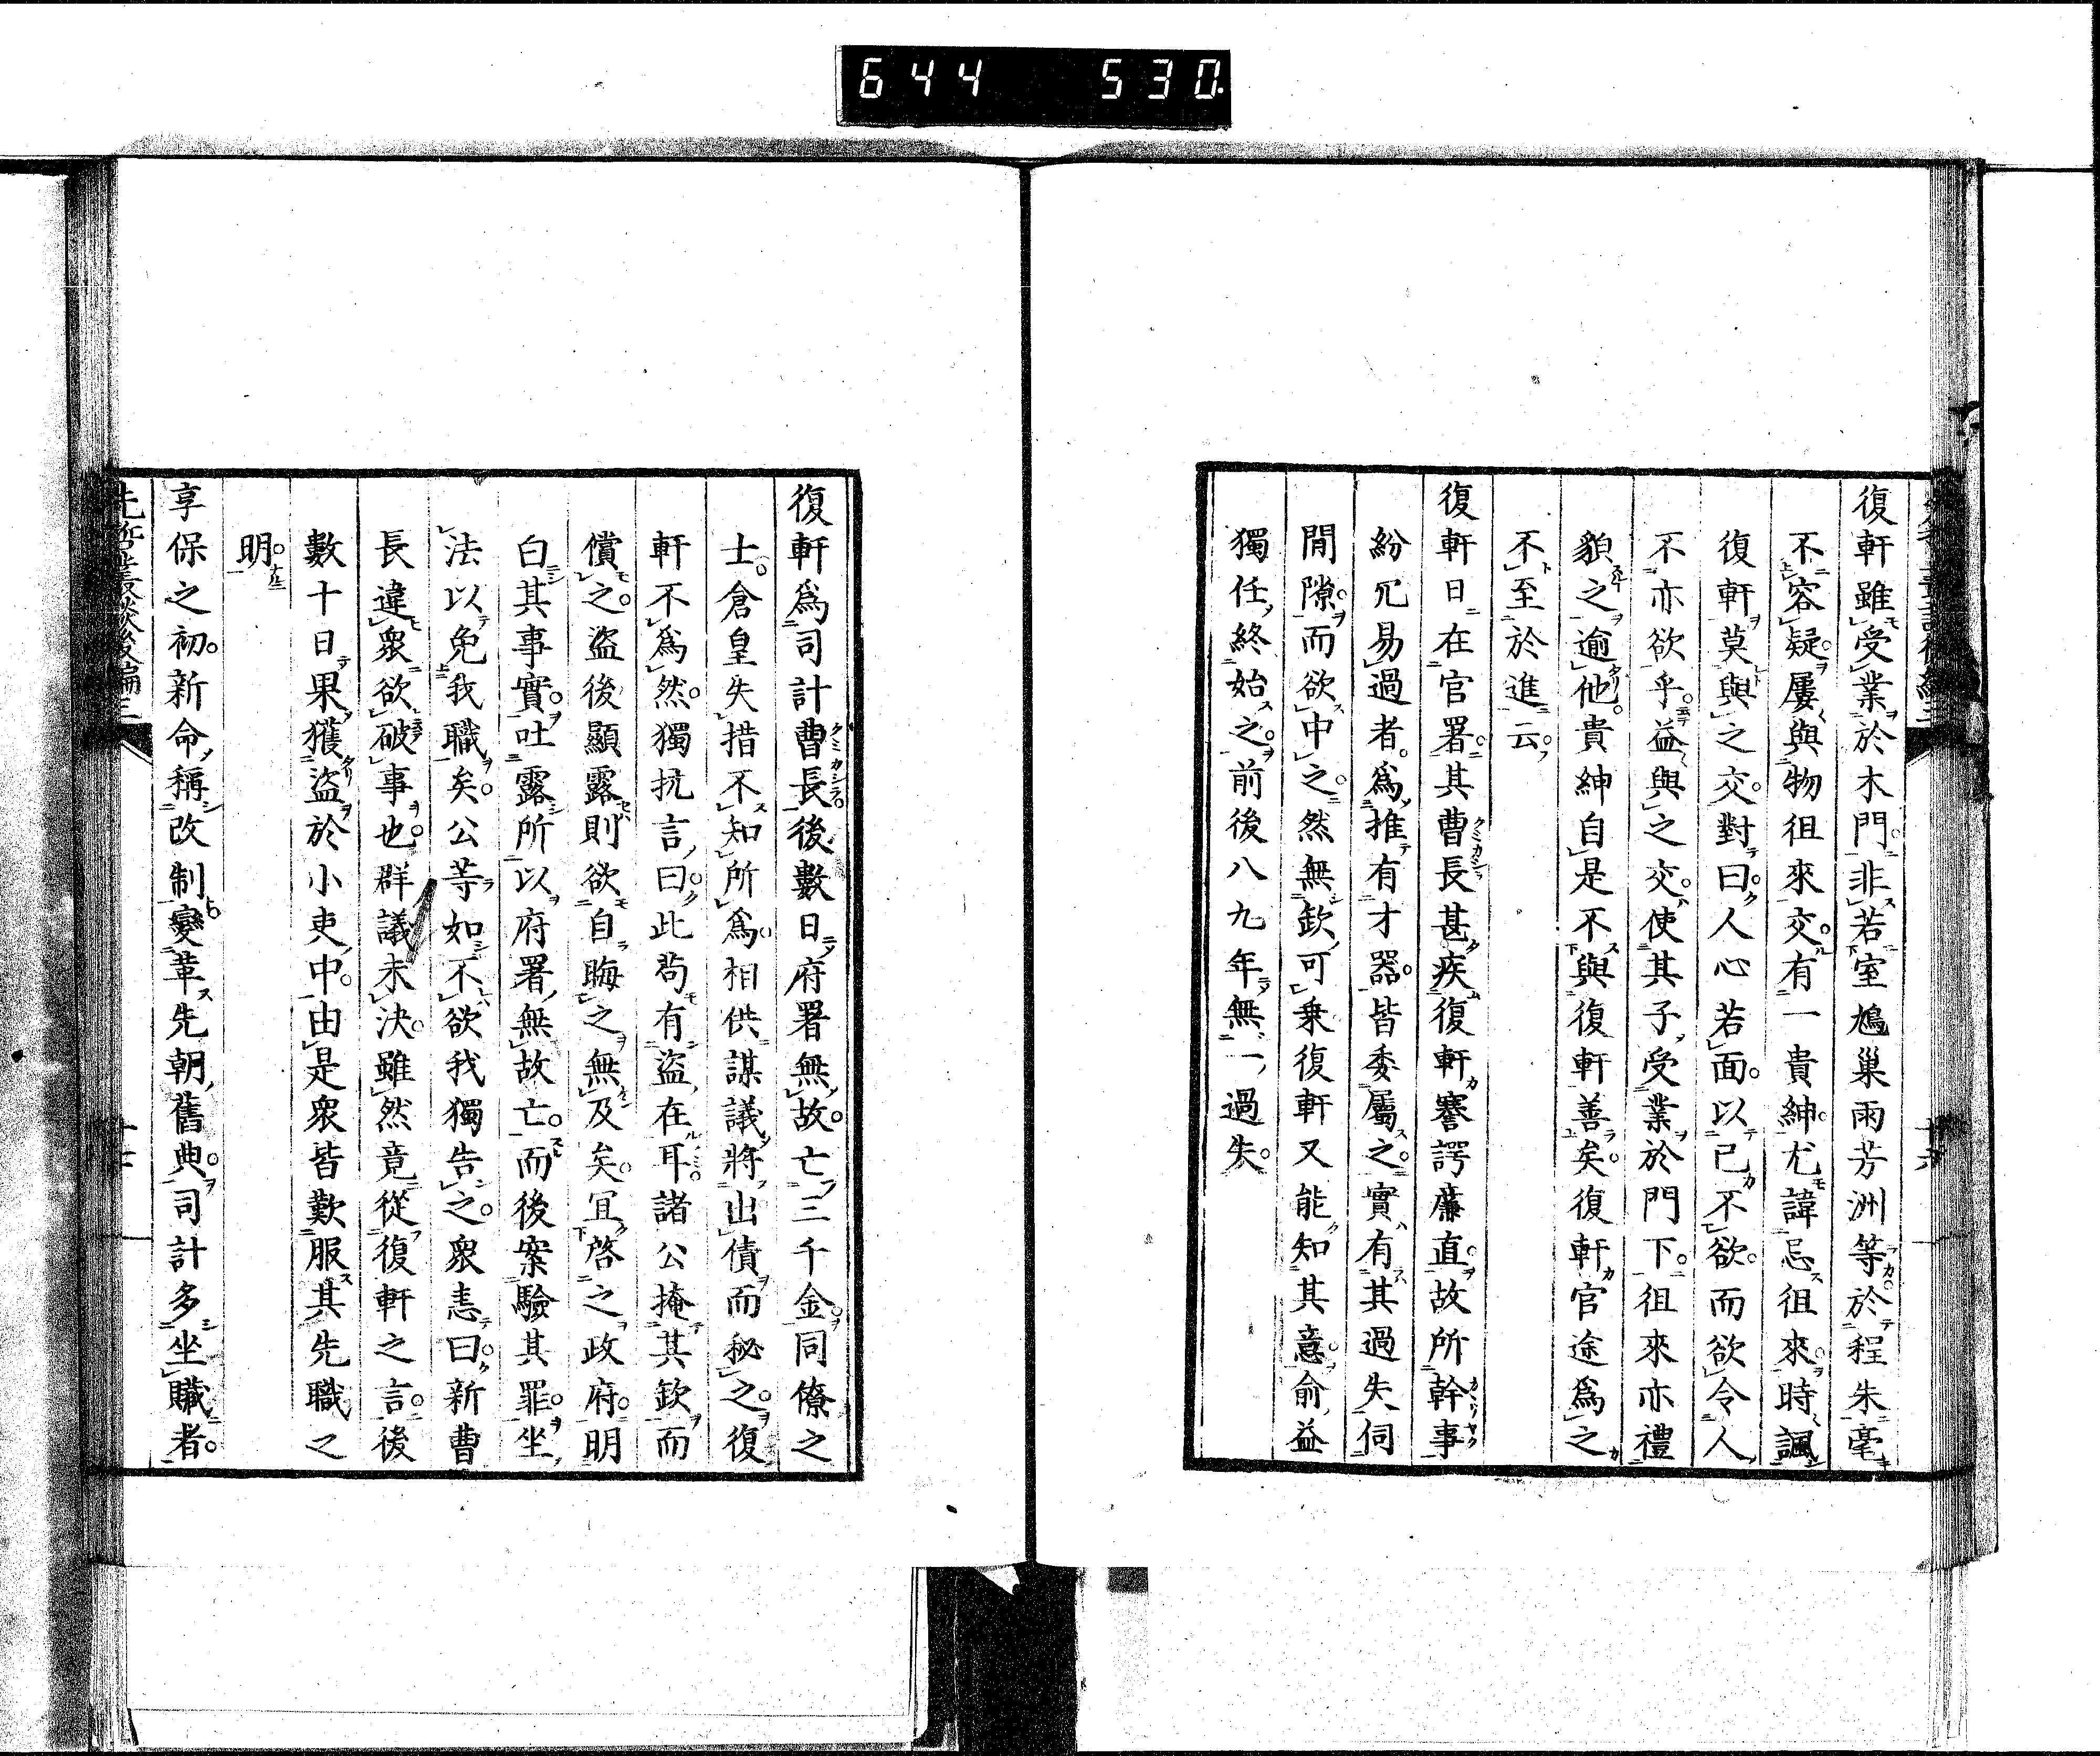 644 530
復軒雖受業於木門非若室鳩巢雨芳洲等於程朱毫
不容疑屢與物徂來交有一貴紳尤諱忌徂來時諷
復軒莫與之交對曰人心若面以己不欲而欲令人
不亦欲乎益與之交使其子受業於門下徂來亦禮
貌之逾他貴紳自是不與復軒善矣復軒官途爲之
不至於進云
復軒日在官署其曹長甚疾復軒謇諤廉直故所幹事
紛冗易過者爲推有才器皆委屬之實有其過失伺
間隙而欲中之然無欸可乗復軒又能知其意兪益
獨任終始之前後八九年無一過失
復軒爲司計曹長後數日府署無故亡三千金同僚之
士倉皇失措不知所爲相供謀議將出債而秘之復
軒不爲然獨抗言曰此苟有盜在耳諸公掩其欸而
償之盜後顯露則欲自晦之無及矣宜啓之政府明
白其事實吐露所以府署無故亡而後案驗其罪坐
法以免我職矣公等如不欲我獨告之衆恚曰新曹
長違衆欲破事也群議未決雖然竟從復軒之言後
數十日果獲盜於小吏中由是衆皆歎服其先職之
明
享保之初新命稱改制變革先朝舊典司計多坐贓者
先哲叢談後編三